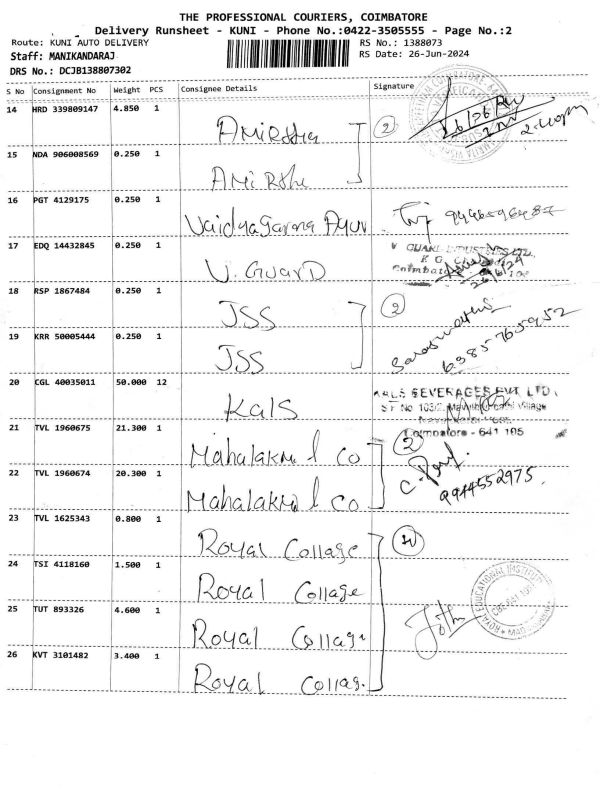 THE PROFESSIONAL COURIERS, COIMBATORE
Delivery Runsheet - KUNI - Phone No.:0422-3505555 - Page No.:2
Route: KUNI AUTO DELIVERY RS No.: 1388073
Staff: MANIKANDARAJ RS Date: 26-Jun-2024
DRS No.: DCJB138807302
S No Consignment No Weight PCS Consignee Details Signature
14 HRD 339809147 4.850 1 Amirtha 2 26/06/24
2.40pm
15 NDA 906008569 0.250 1 Amirtha
16 PGT 4129175 0.250 1 Vaidyagarama Ayur
17 EDQ 14432845 0.250 1 V. GUARD V GUARD INDUSTRIES LTD.,
26/6/24
18 RSP 1867484 0.250 1 JSS 2
19 KRR 50005444 0.250 1 JSS Saraswathi 6385765952
20 CGL 40035011 50.000 12 Kals KALS BEVERAGES PVT LTD.,
Village
Coimbatore - 641 105
21 TVL 1960675 21.300 1 Mahalakmi Co 2
22 TVL 1960674 20.300 1 Mahalakmi Co 9944552975
23 TVL 1625343 0.800 1 Royal Collage 4
24 TSI 4118160 1.500 1 Royal Collage
25 TUT 893326 4.600 1 Royal Collage
26 KVT 3101482 3.400 1 Royal Collag.
ROYAL EDUCATIONAL INSTITUT